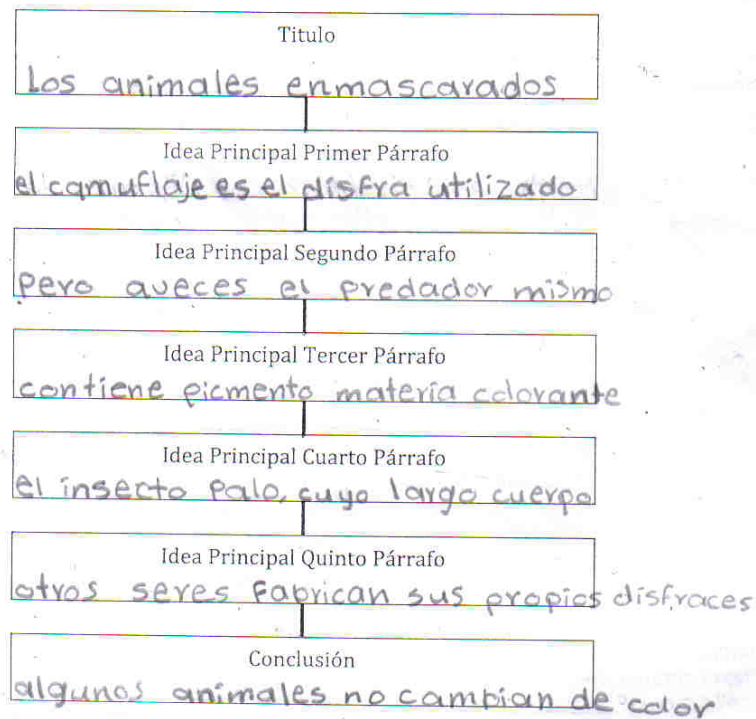 Titulo
Los animales enmascarados
Idea Principal Primer Párrafo
el camuflaje es el disfra utilizado
Idea Principal Segundo Párrafo
pero aveces el predador mismo
Idea Principal Tercer Párrafo
contiene picmento materia colorante
Idea Principal Cuarto Párrafo
el insecto palo, cuyo largo cuerpo
Idea Principal Quinto Párrafo
otros seres fabrican sus propios disfraces
Conclusión
algunos animales no cambian de color